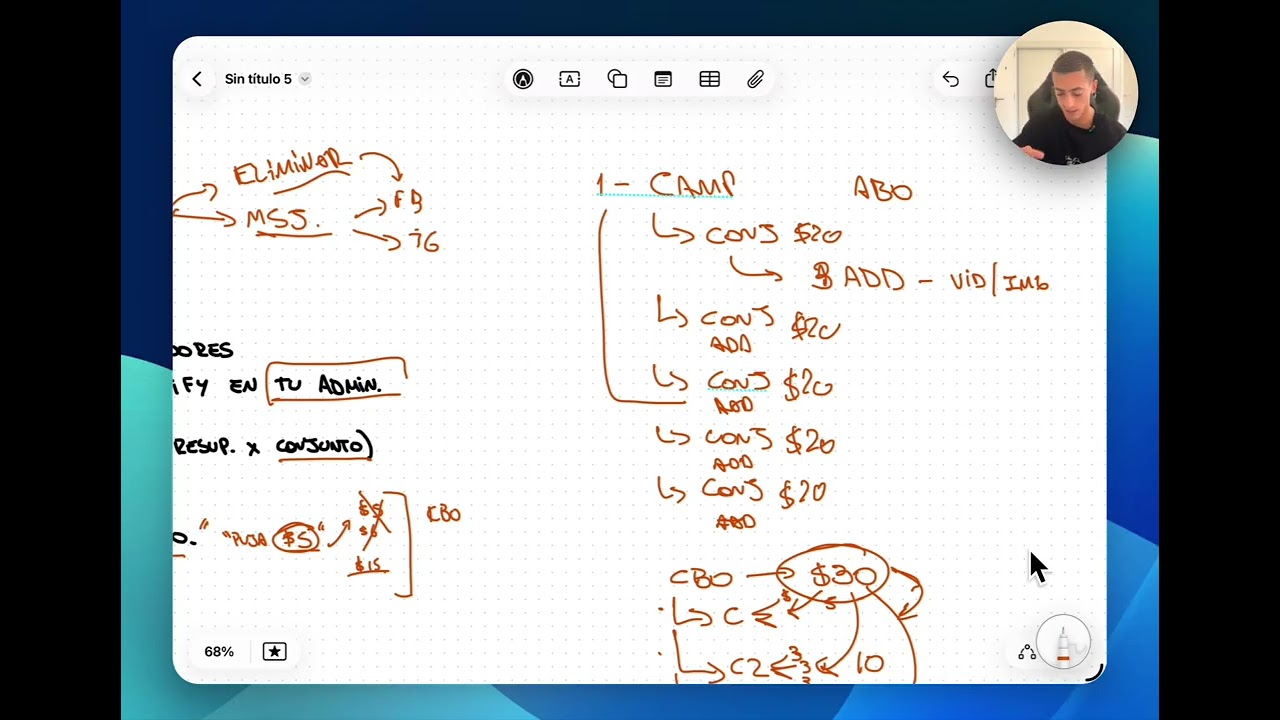 Sin título 5
ELIMINAR
MSJ.
FB
IG
DORES
IFY EN TU ADMIN.
RESUP. X CONJUNTO)
O." "PUJA $5"
$5
$15
CBO
1 - CAMP ABO
CONJ $20
ADD - VID/IMG
CONJ $20
ADD
CONJ $20
ADD
CONJ $20
ADD
CONJ $20
ADD
CBO $30
C
C2 3 3 3 10
68%